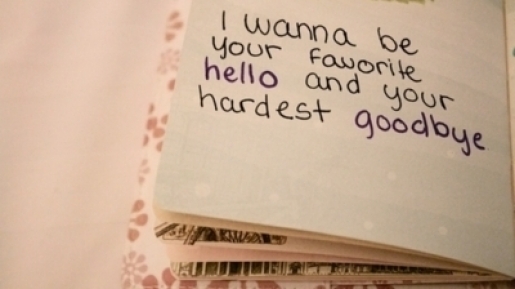 I wanna be
your favorite
hello and your
hardest goodbye